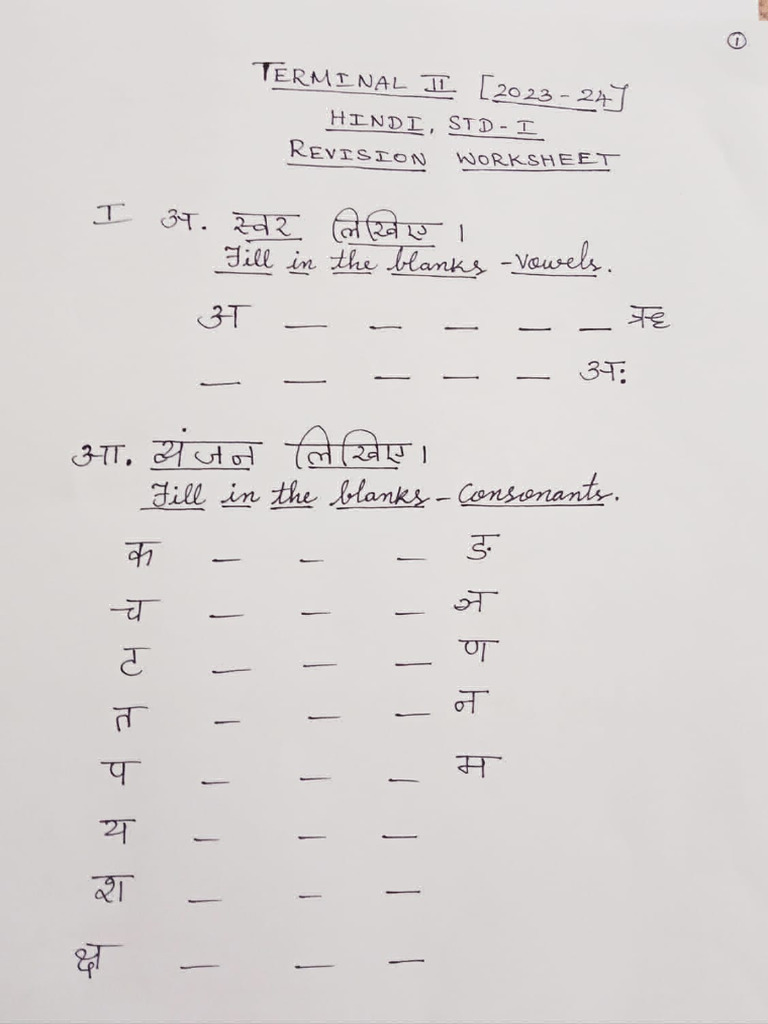 ①
TERMINAL II [2023-24]
HINDI, STD-I
REVISION WORKSHEET
I अ. स्वर लिखिए।
Fill in the blanks - Vowels.
अ _ _ _ _ _ ऋ
_ _ _ _ _ अः
आ. व्यंजन लिखिए।
Fill in the blanks - Consonants.
क _ _ _ ङ
च _ _ _ ञ
ट _ _ _ ण
त _ _ _ न
प _ _ _ म
य _ _ _
श _ _ _
क्ष _ _ _